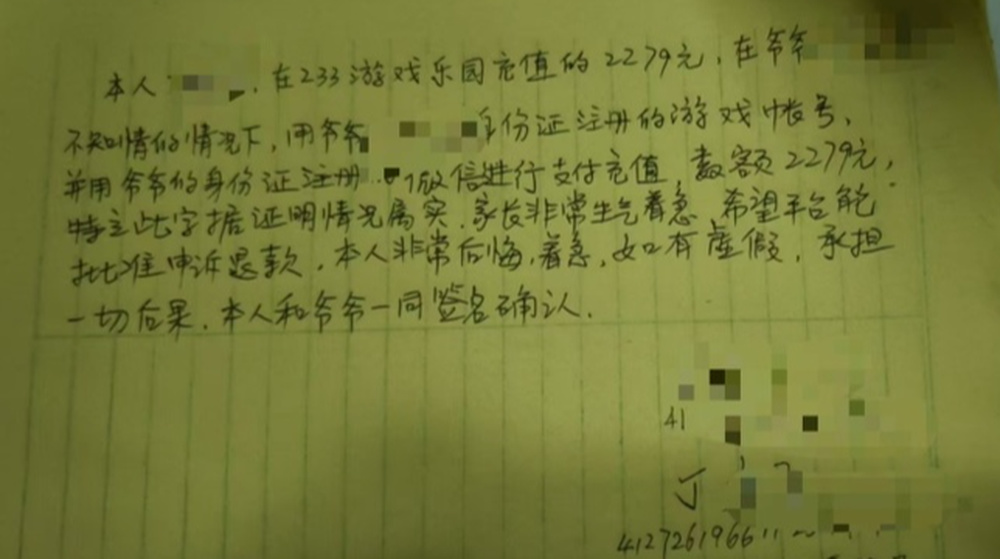 本人 ,在233游戏乐园充值的2279元,在爷爷
不知情的情况下,用爷爷 身份证注册的游戏帐号,
并用爷爷的身份证注册 微信进行支付充值,数额2279元,
特立此字据证明情况属实.家长非常生气着急,希望平台能
批准申诉退款,本人非常后悔,着急,如有虚假,承担
一切后果.本人和爷爷一同签名确认.
41
丁
4127261966